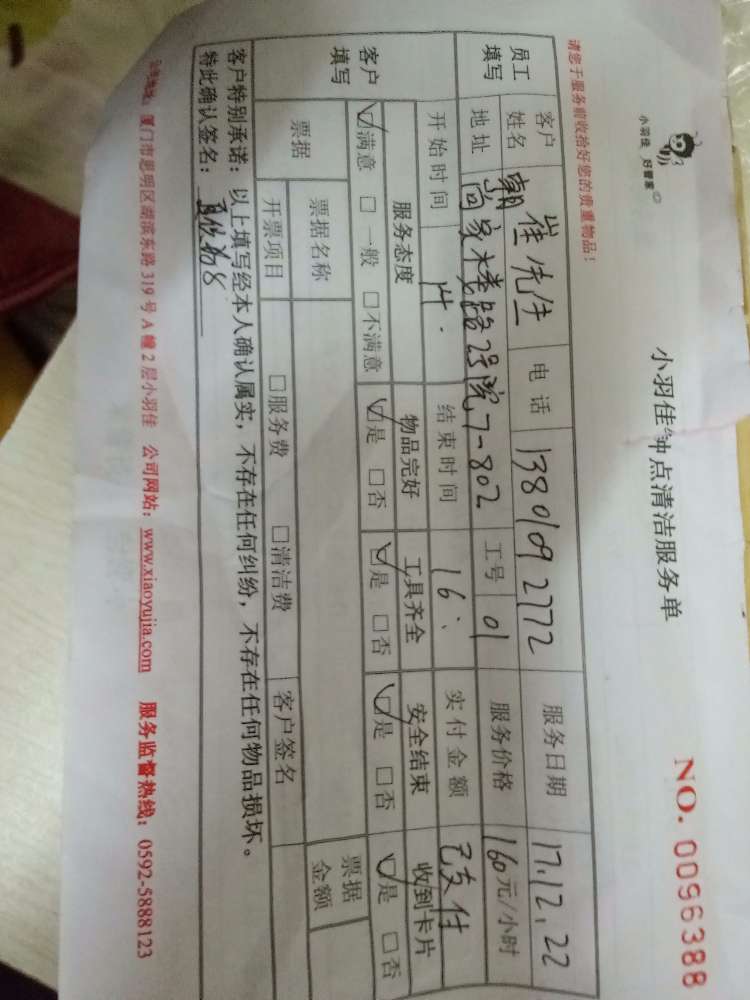 小羽佳 好管家
小羽佳钟点清洁服务单
NO. 0096388
请您于服务前收拾好您的贵重物品！
员工填写
客户姓名 崔先生 电话 13801092772 服务日期 17.12.22
地址 朝 尚家楼路2号院7-802 工号 01 服务价格 160元/小时
开始时间 14. 结束时间 16: 实付金额 已支付
客户填写
服务态度 物品完好 工具齐全 安全结束 收到卡片
☑满意 □一般 □不满意 ☑是 □否 ☑是 □否 ☑是 □否 ☑是 □否
票据 票据名称 票据金额
开票项目 □服务费 □清洁费 客户签名
客户特别承诺：以上填写经本人确认属实，不存在任何纠纷，不存在任何物品损坏。
特此确认签名：
公司地址：厦门市思明区湖滨东路319号A幢2层小羽佳 公司网站：www.xiaoyujia.com 服务监督热线：0592-5888123